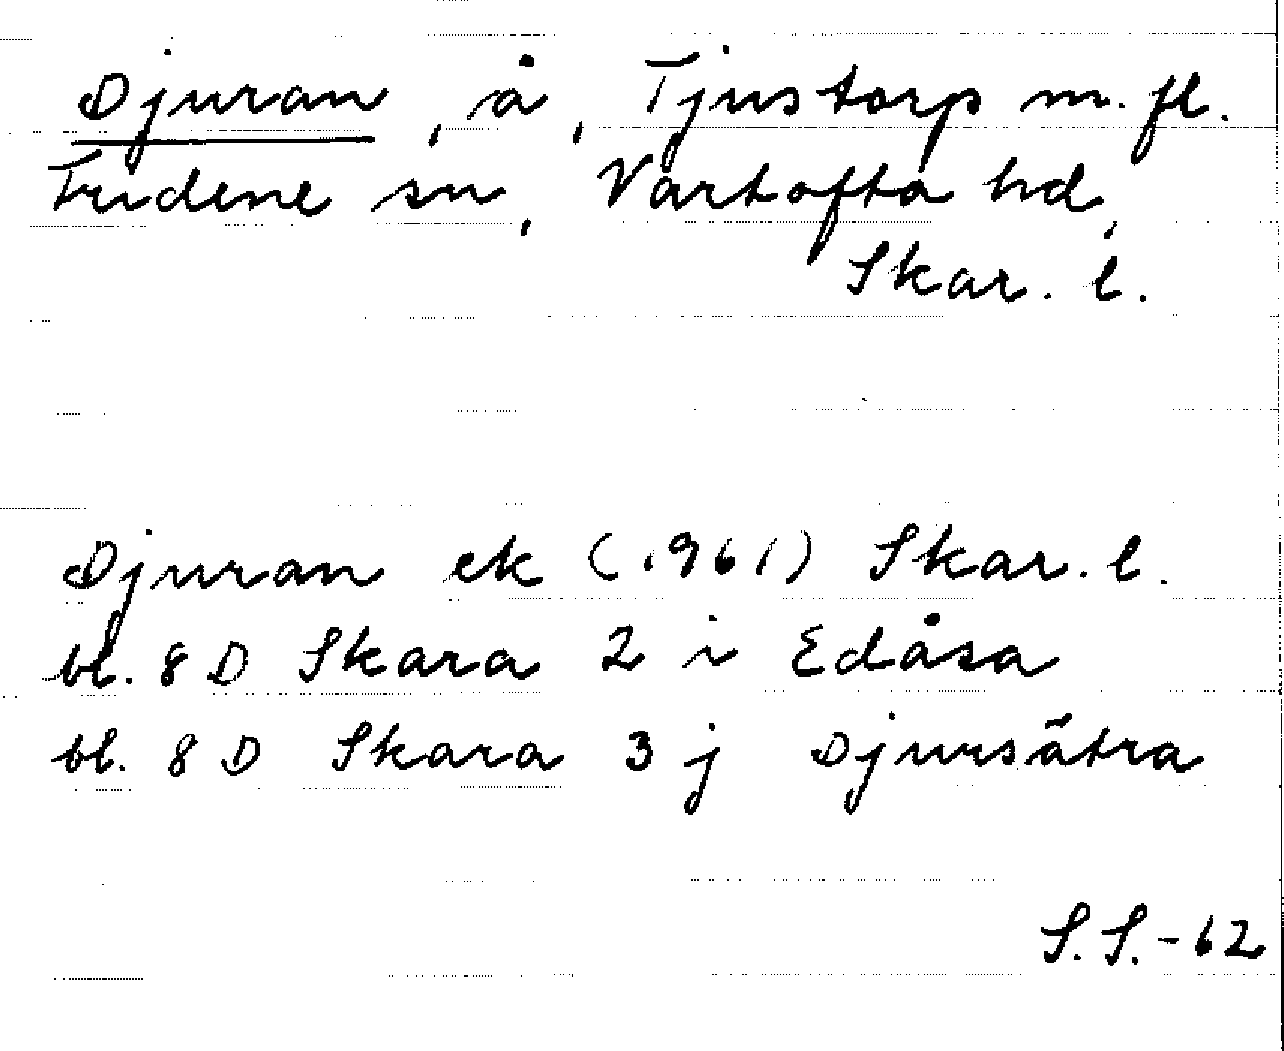 Djuran, å, Tjustorp m. fl.
Fridene sn, Vartofta hd,
Skar. l.
Djuran ek (1961) Skar. l.
bl. 8 D Skara 2 i Edåsa
bl. 8 D Skara 3 j Djursätra
S.S.-62